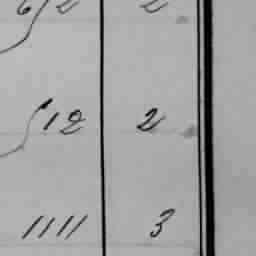 6 2 2
12 2
1111 3